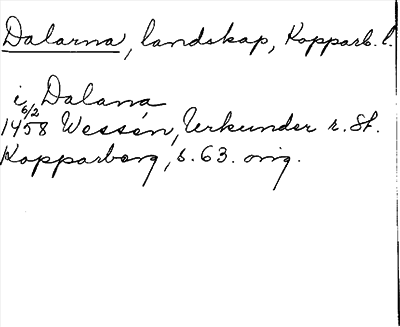 Dalarna, landskap, Kopparb. l.
i Dalana
1458 6/2 Wessén, Urkunder r. St.
Kopparberg, s. 63. orig.